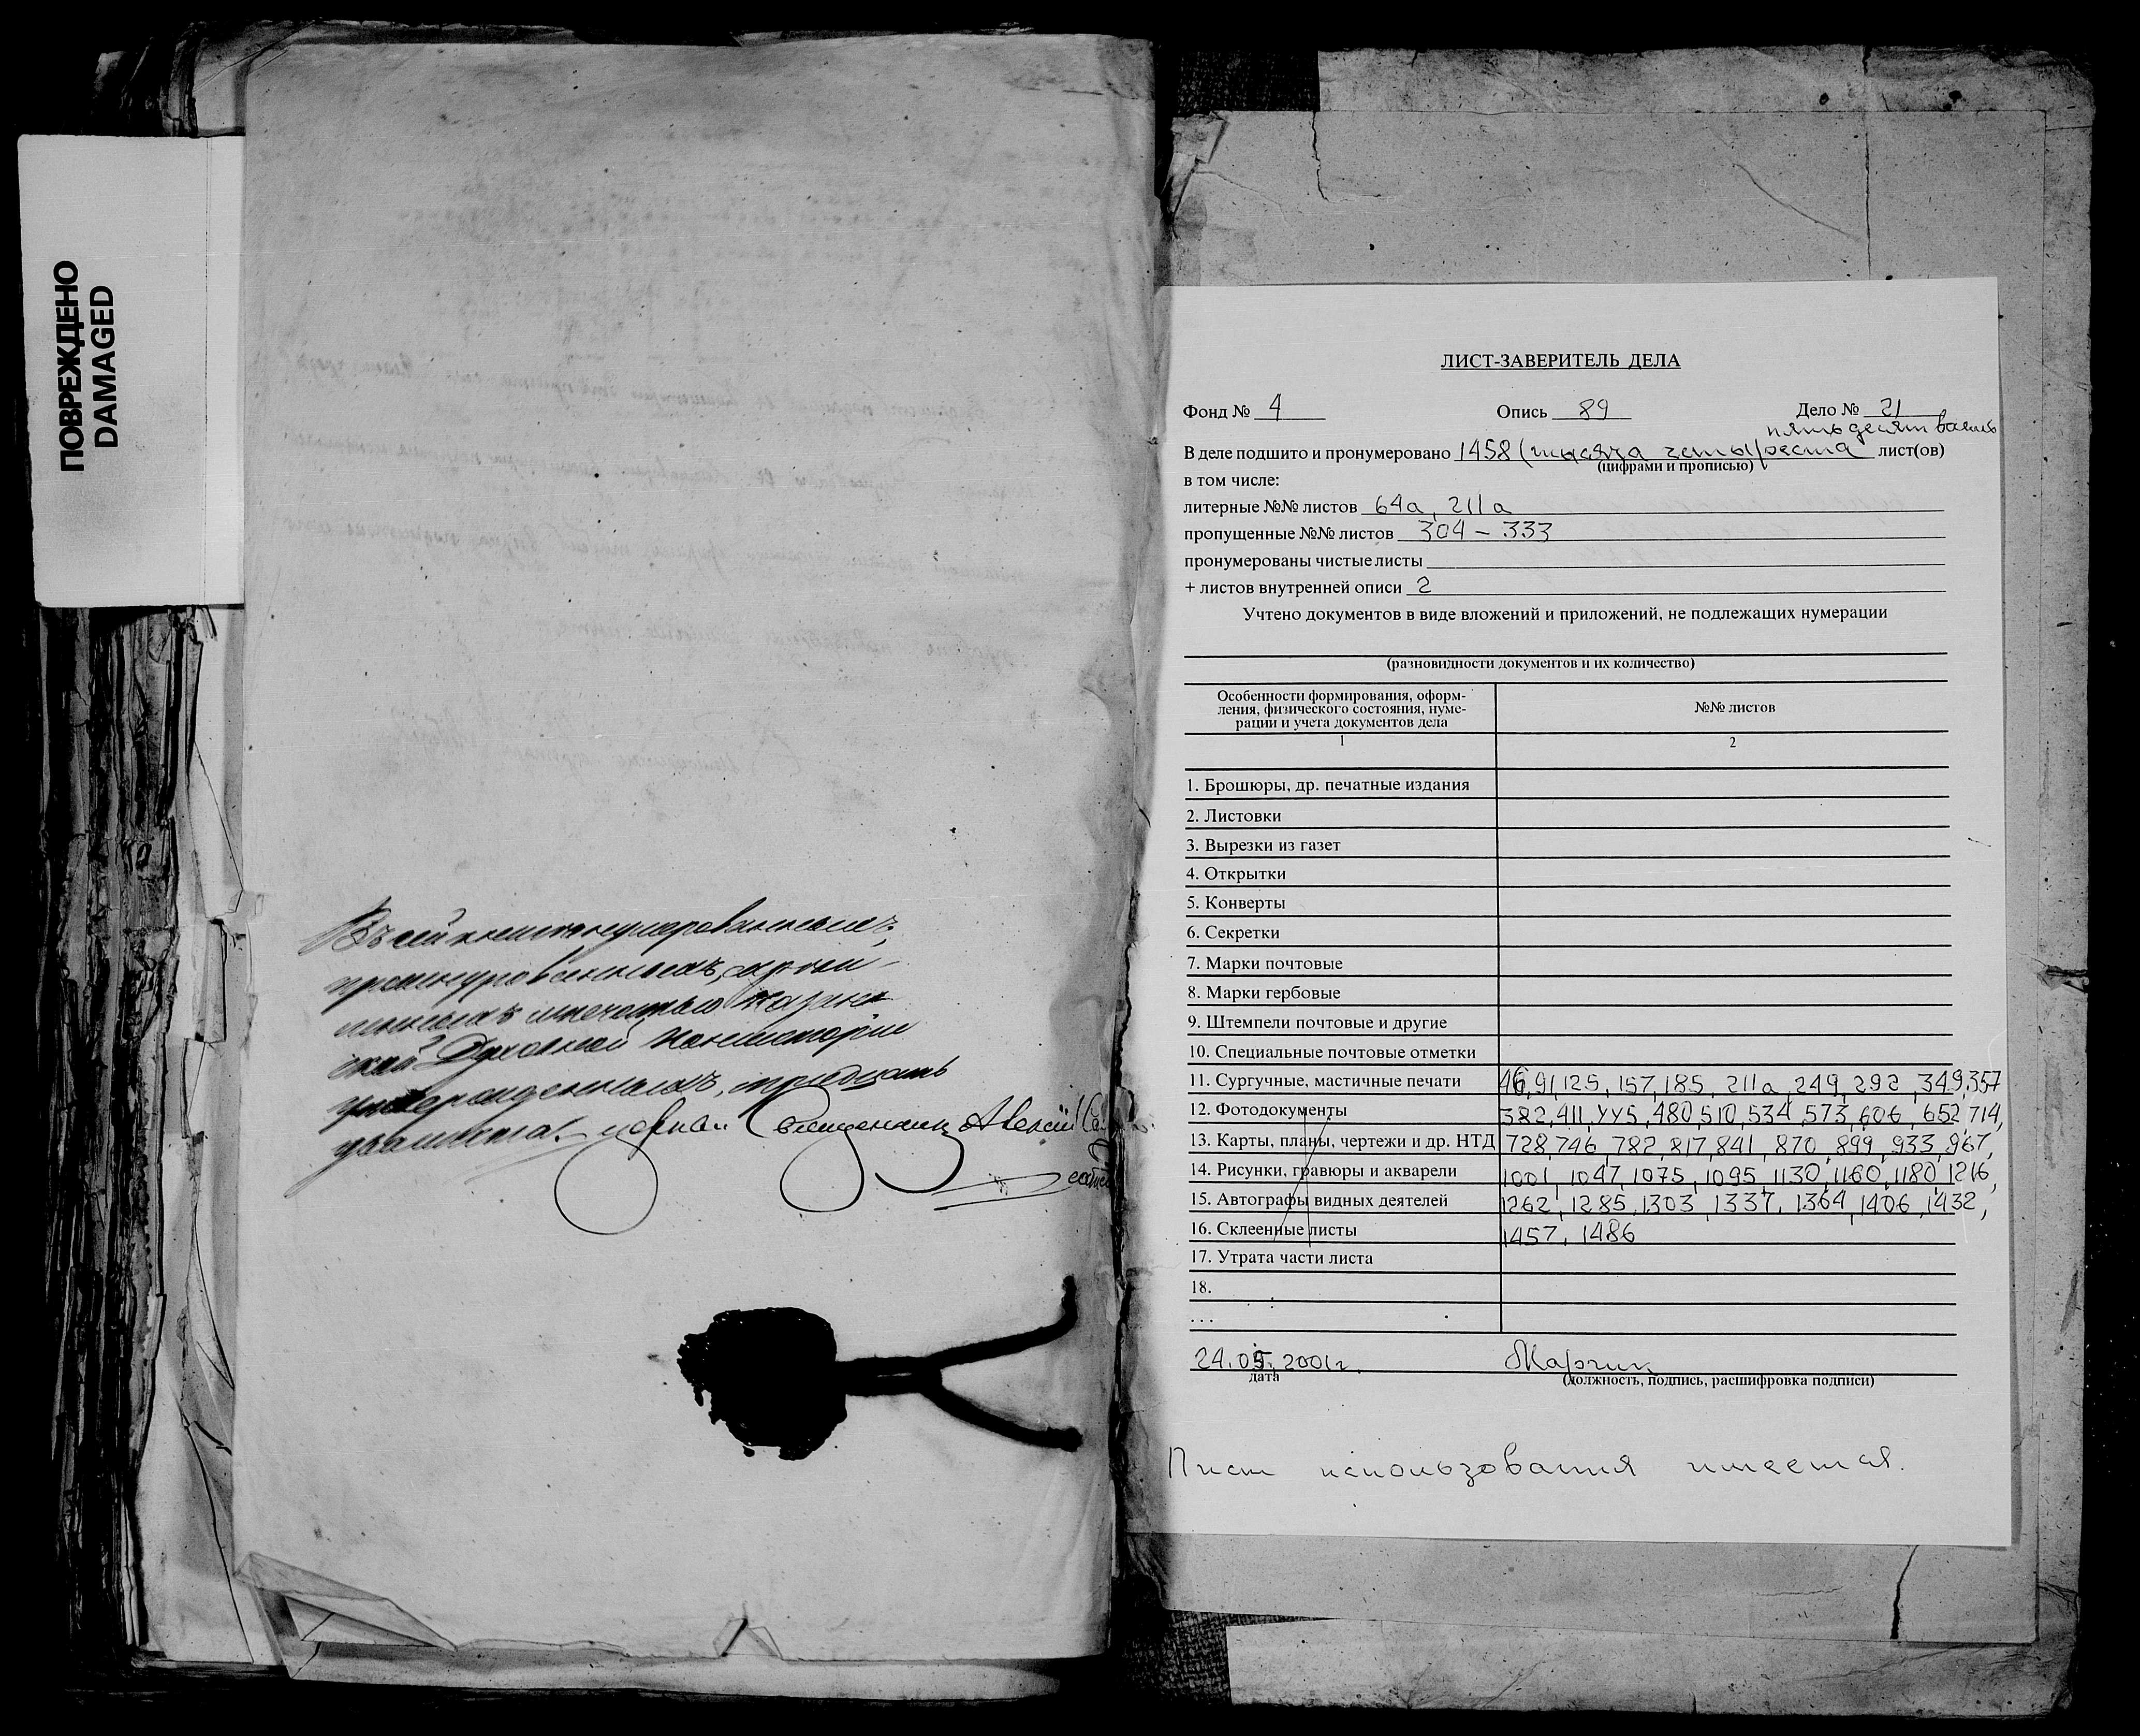 ПОВРЕЖДЕНО
DAMAGED
Въ сей книгѣ нумерованныхъ,
прошнурованныхъ, скрѣп-
ленныхъ и печатью
ской Духовной Консисторіи
утвержденныхъ, тридцать
Священникъ Алексій
ЛИСТ-ЗАВЕРИТЕЛЬ ДЕЛА
Фонд № 4 Опись 89 Дело № 21
пятьдесят восемь
В деле подшито и пронумеровано 1458 (тысяча четыреста лист(ов)
(цифрами и прописью)
в том числе:
литерные №№ листов 64а, 211а
пропущенные №№ листов 304 – 333
пронумерованы чистые листы
+ листов внутренней описи 2
Учтено документов в виде вложений и приложений, не подлежащих нумерации
(разновидности документов и их количество)
Особенности формирования, оформ-
ления, физического состояния, нуме-
рации и учета документов дела
№№ листов
1 2
1. Брошюры, др. печатные издания
2. Листовки
3. Вырезки из газет
4. Открытки
5. Конверты
6. Секретки
7. Марки почтовые
8. Марки гербовые
9. Штемпели почтовые и другие
10. Специальные почтовые отметки
11. Сургучные, мастичные печати 46, 91, 125, 157, 185, 211а, 249, 292, 349, 357
12. Фотодокументы 382, 411, 445, 480, 510, 534, 573, 606, 652, 714,
13. Карты, планы, чертежи и др. НТД 728, 746, 782, 817, 841, 870, 899, 933, 967,
14. Рисунки, гравюры и акварели 1001, 1047, 1075, 1095, 1130, 1160, 1180, 1216,
15. Автографы видных деятелей 1262, 1285, 1303, 1337, 1364, 1406, 1432,
16. Склеенные листы 1457, 1486
17. Утрата части листа
18.
...
24.05.2001г.
дата (должность, подпись, расшифровка подписи)
Лист использования имеется.